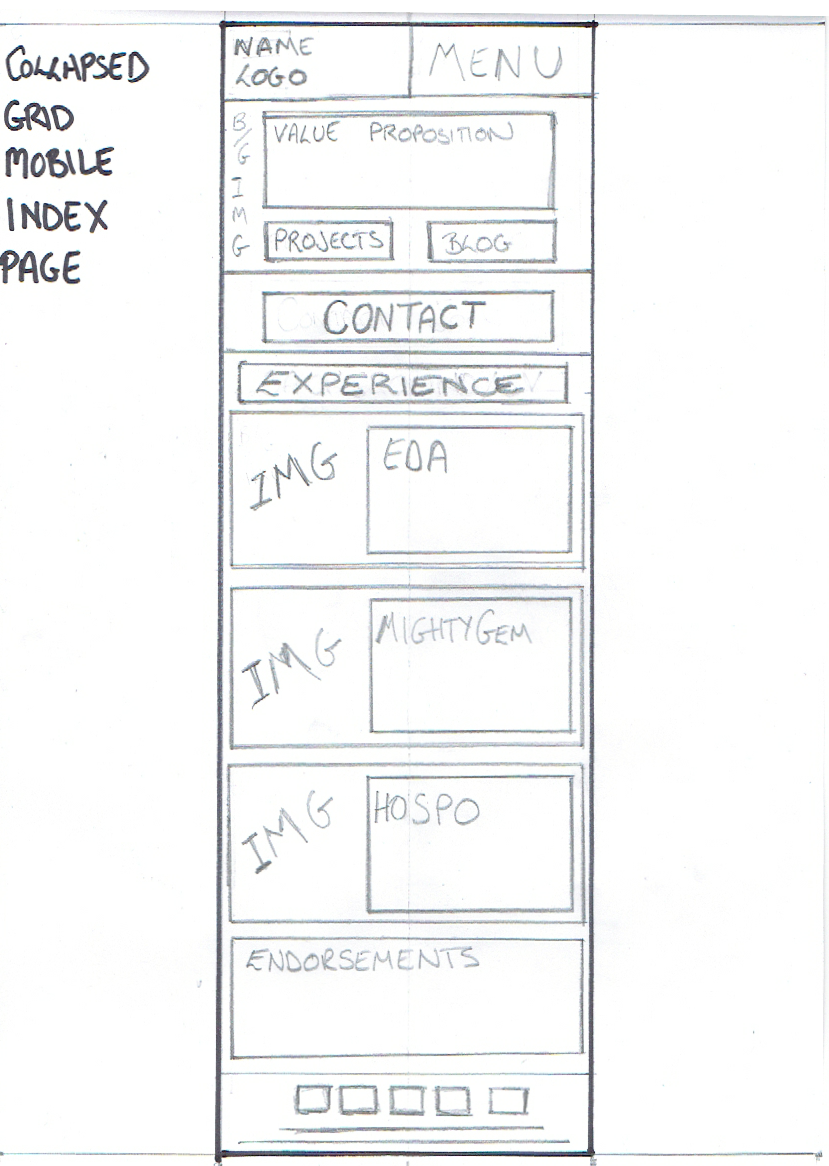 COLLAPSED
GRID
MOBILE
INDEX
PAGE
NAME
LOGO
MENU
B/G IMG
VALUE PROPOSITION
PROJECTS
BLOG
CONTACT
EXPERIENCE
IMG
EDA
IMG
MIGHTYGEM
IMG
HOSPO
ENDORSEMENTS